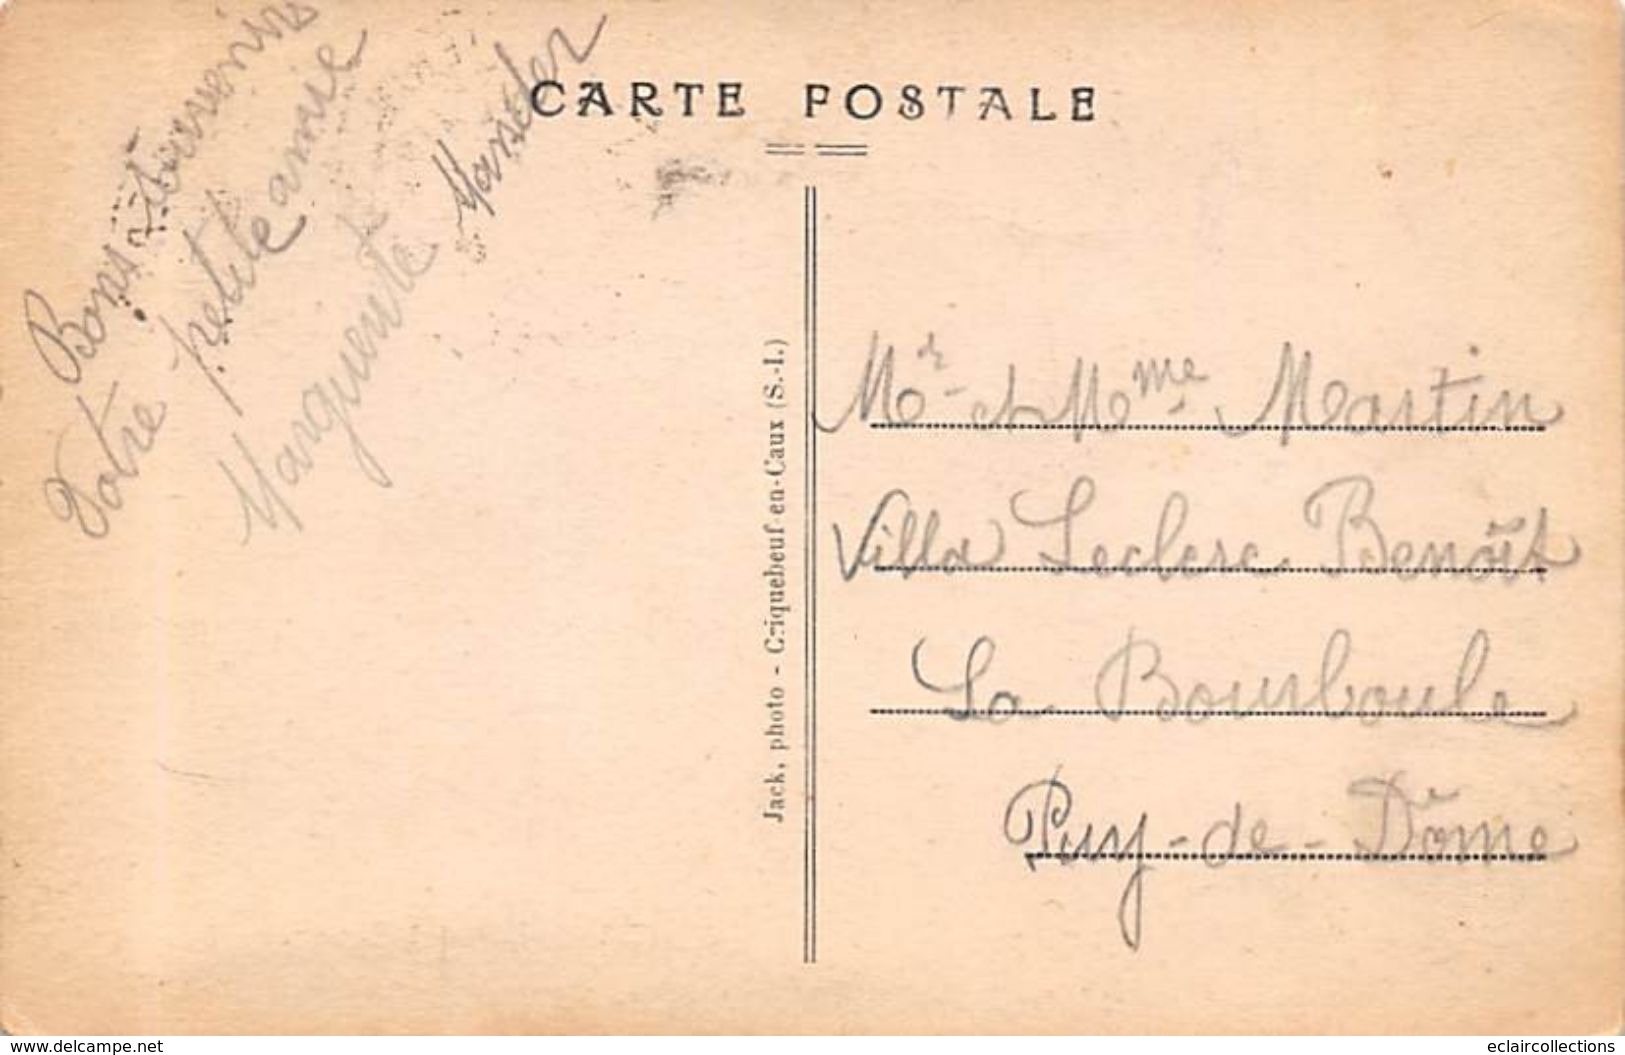 CARTE POSTALE
Bons souvenirs
Votre petite amie
Marguerite
Jack, photo - Criquebeuf-en-Caux (S.-I.)
Mr et Mme Martin
Villa Leclerc Benoît
La Bourboule
Puy-de-Dôme
www.delcampe.net
eclaircollections